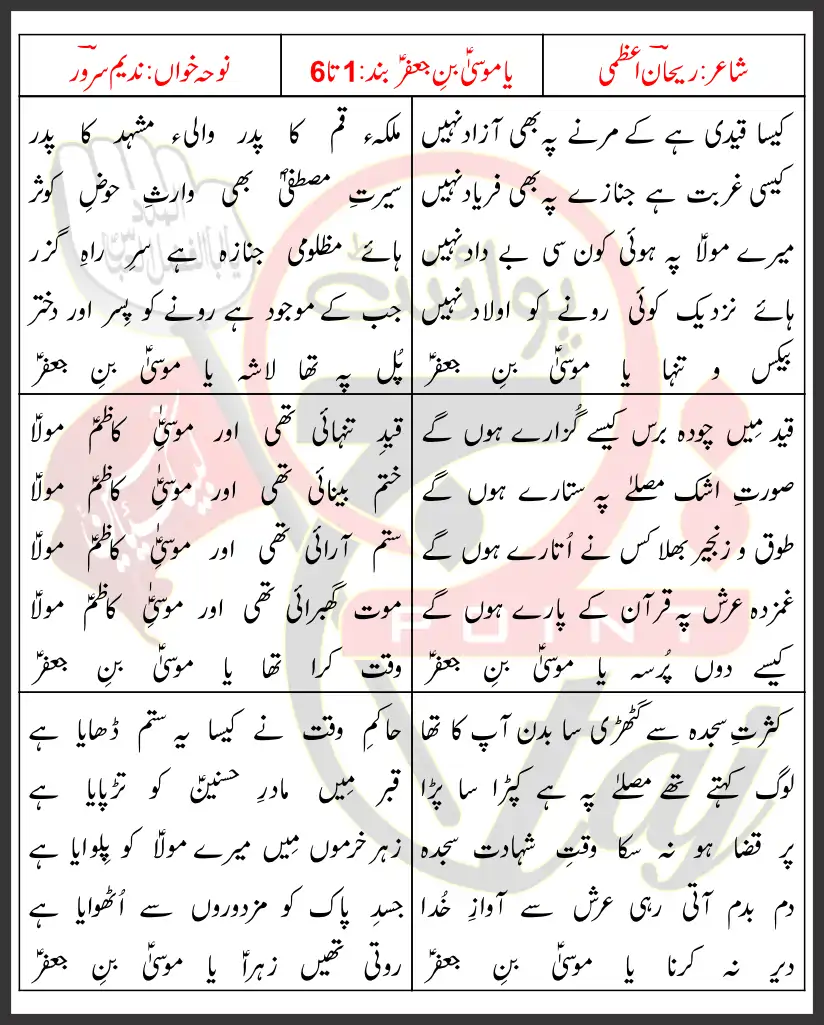 شاعر: ریحان اعظمی
یا موسیٰؑ بنِ جعفرؑ بند: 1 تا 6
نوحہ خواں: ندیم سرور
کیسا قیدی ہے کے مرنے پہ بھی آزاد نہیں
کیسی غربت ہے جنازے پہ بھی فریاد نہیں
میرے مولاؑ پہ ہوئی کون سی بے داد نہیں
ہائے نزدیک کوئی رونے کو اولاد نہیں
بیکس و تنہا یا موسیٰؑ بنِ جعفرؑ
ملکہء قم کا پدر والیء مشہد کا پدر
سیرتِ مصطفیؐ بھی وارثِ حوضِ کوثر
ہائے مظلومی جنازہ ہے سرِ راہِ گزر
جب کے موجود ہے رونے کو پِسر اور دختر
پُل پہ تھا لاشہ یا موسیٰؑ بنِ جعفرؑ
قید مِیں چودہ برس کیسے گُزارے ہوں گے
صورتِ اشک مصلےٰ پہ ستارے ہوں گے
طوق و زنجیر بھلا کس نے اُتارے ہوں گے
غمزدہ عرش پہ قرآن کے پارے ہوں گے
کیسے دوں پُرسہ یا موسیٰؑ بنِ جعفرؑ
قیدِ تنہائی تھی اور موسیٰؑ کاظمؑ مولاؑ
ختم بینائی تھی اور موسیٰؑ کاظمؑ مولاؑ
ستم آرائی تھی اور موسیٰؑ کاظمؑ مولاؑ
موت گھبرائی تھی اور موسیٰؑ کاظمؑ مولاؑ
وقت کرا تھا یا موسیٰؑ بنِ جعفرؑ
کثرتِ سجدہ سے گٹھڑی سا بدن آپ کا تھا
لوگ کہتے تھے مصلےٰ پہ ہے کپڑا سا پڑا
پر قضا ہو نہ سکا وقتِ شہادت سجدہ
دم بدم آتی رہی عرش سے آوازِ خُدا
دیر نہ کرنا یا موسیٰؑ بنِ جعفرؑ
حاکمِ وقت نے کیسا یہ ستم ڈھایا ہے
قبر مِیں مادرِ حسنینؑ کو تڑپایا ہے
زہر خرموں مِیں میرے مولاؑ کو پِلوایا ہے
جسدِ پاک کو مزدوروں سے اُٹھوایا ہے
روتی تھیں زہراؑ یا موسیٰؑ بنِ جعفرؑ
POINT
taj